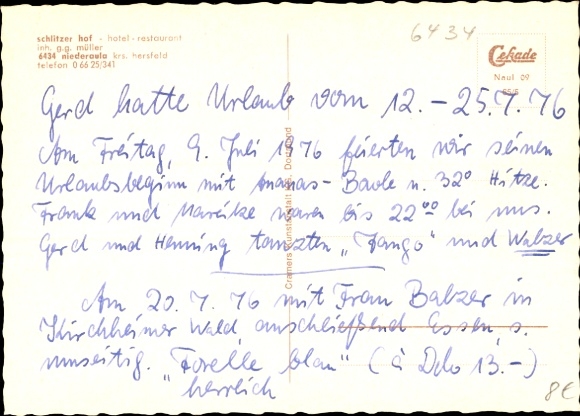 schlitzer hof - hotel-restaurant
inh. g.g. müller
6434 niederaula krs. hersfeld
telefon 0 66 25/341
6434
Cekade
Naul 09
55/5
Cramers Kunstanstalt KG, Dortmund
Gerd hatte Urlaub vom 12.-25.7.76
Am Freitag, 9. Juli 1976 feierten wir seinen
Urlaubsbeginn mit Ananas-Bowle u. 32° Hitze.
Frank und Mareike waren bis 22⁰⁰ bei uns.
Gerd und Henning tanzten "Tango" und Walzer
Am 20.7.76 mit Frau Balzer in
Kirchheimer Wald anschließend Essen, s.
umseitig. "Forelle blau" (à Dlo 13.-)
herrlich
8€